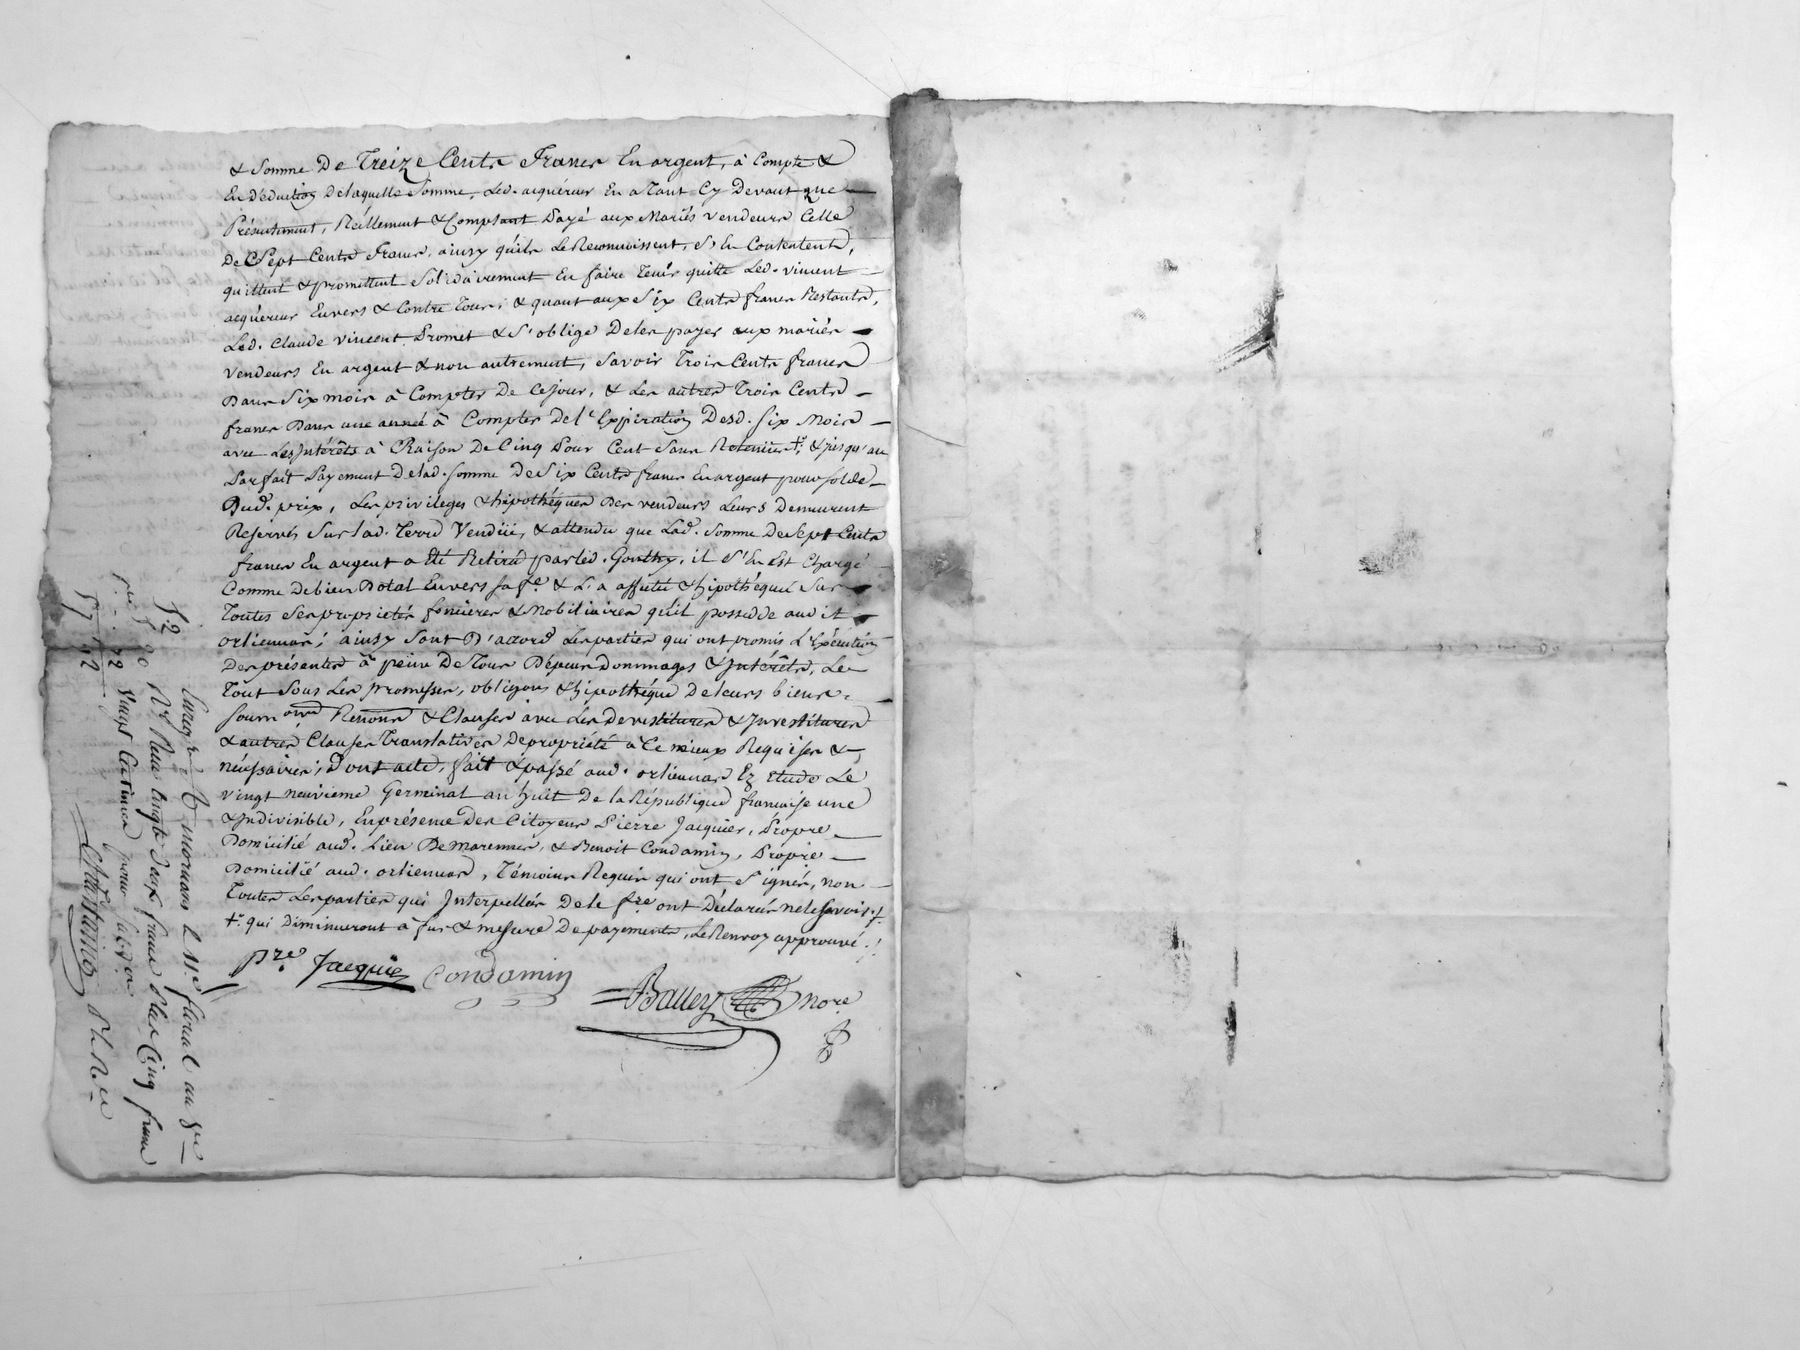 & Somme De Treize Cents Francs En argent, à Compte &
En Déduction De laquelle Somme, Led. acquéreur En a Tant Cy Devant que
Présentement, Réellement & Comptant Payé aux Mariés vendeurs Celle
De Sept Cents Francs, ainsy qu'ils Le Reconnoissent, S'En Contentent,
quittent & promettent Solidairement En faire Tenir quitte Led. vincent
acquéreur Envers & Contre Tous; & quant aux Six Cents francs Restants,
Led. Claude vincent Promet & S'oblige De les payer aux mariés
vendeurs En argent & non autrement, Savoir Trois Cents francs
Dans Six mois à Compter De Ce jour, & Les autres Trois Cents
francs Dans une année à Compter De l'Expiration Desd. Six Mois
avec Les Intérêts à Raison De Cinq Pour Cent Sans Retenüe +, & jusqu'au
Parfait Payement De lad. Somme De Six Cents francs En argent pour solde
Dud. prix, Les privilèges & hipothéques Des vendeurs Leurs Demeurent
Reservés Sur lad. Terre Vendüe, & attendu que Lad. Somme De Sept Cents
francs En argent a Eté Retiré par led. Gonthy, il S'En Est Chargé
Comme De bien Dotal Envers sa fe. & L'a affecté & hipothéqué Sur
Toutes Ses proprietés foncieres & Mobiliaires qu'il possedde aud it
orlienas; ainsy Sont D'accord Les parties qui ont promis L'Exécution
Des présentes à peine De Tous Dépens Dommages & Intérêts, Le
Tout Sous Les promesses, obligons & hipothéque De leurs biens,
Soumons Renons & Clauses avec Les Devestitures & Investitures
& autres Clauses Translatives De propriété à Ce mieux Requises &
nécessaires; Dont acte, fait & passé aud. orlienas Ez Etude Le
vingt neuvieme Germinal an huit De la République francaise une
& Indivisible, En présence Des Citoyens Pierre Jacquier, Propre
Domicilié aud. Lieu De Marennes, & Benoit Condamin, Propre
Domicilié aud. orlienas, Témoins Requis qui ont Signés, non
Toutes Les parties qui Interpellés De le fre ont Déclarés ne le Savoir +
+ qui Diminueront à fur & mesure De payements, Le Renvoy approuvé.
Pre Jacquier Condamin
Balley nore
Enregré à mornans L 11e floreal an 8e
52 80 R Neuf cingts Deux francs Plus Cinq francs
5. 22 Vingt Centimes pour Subvon
57 72